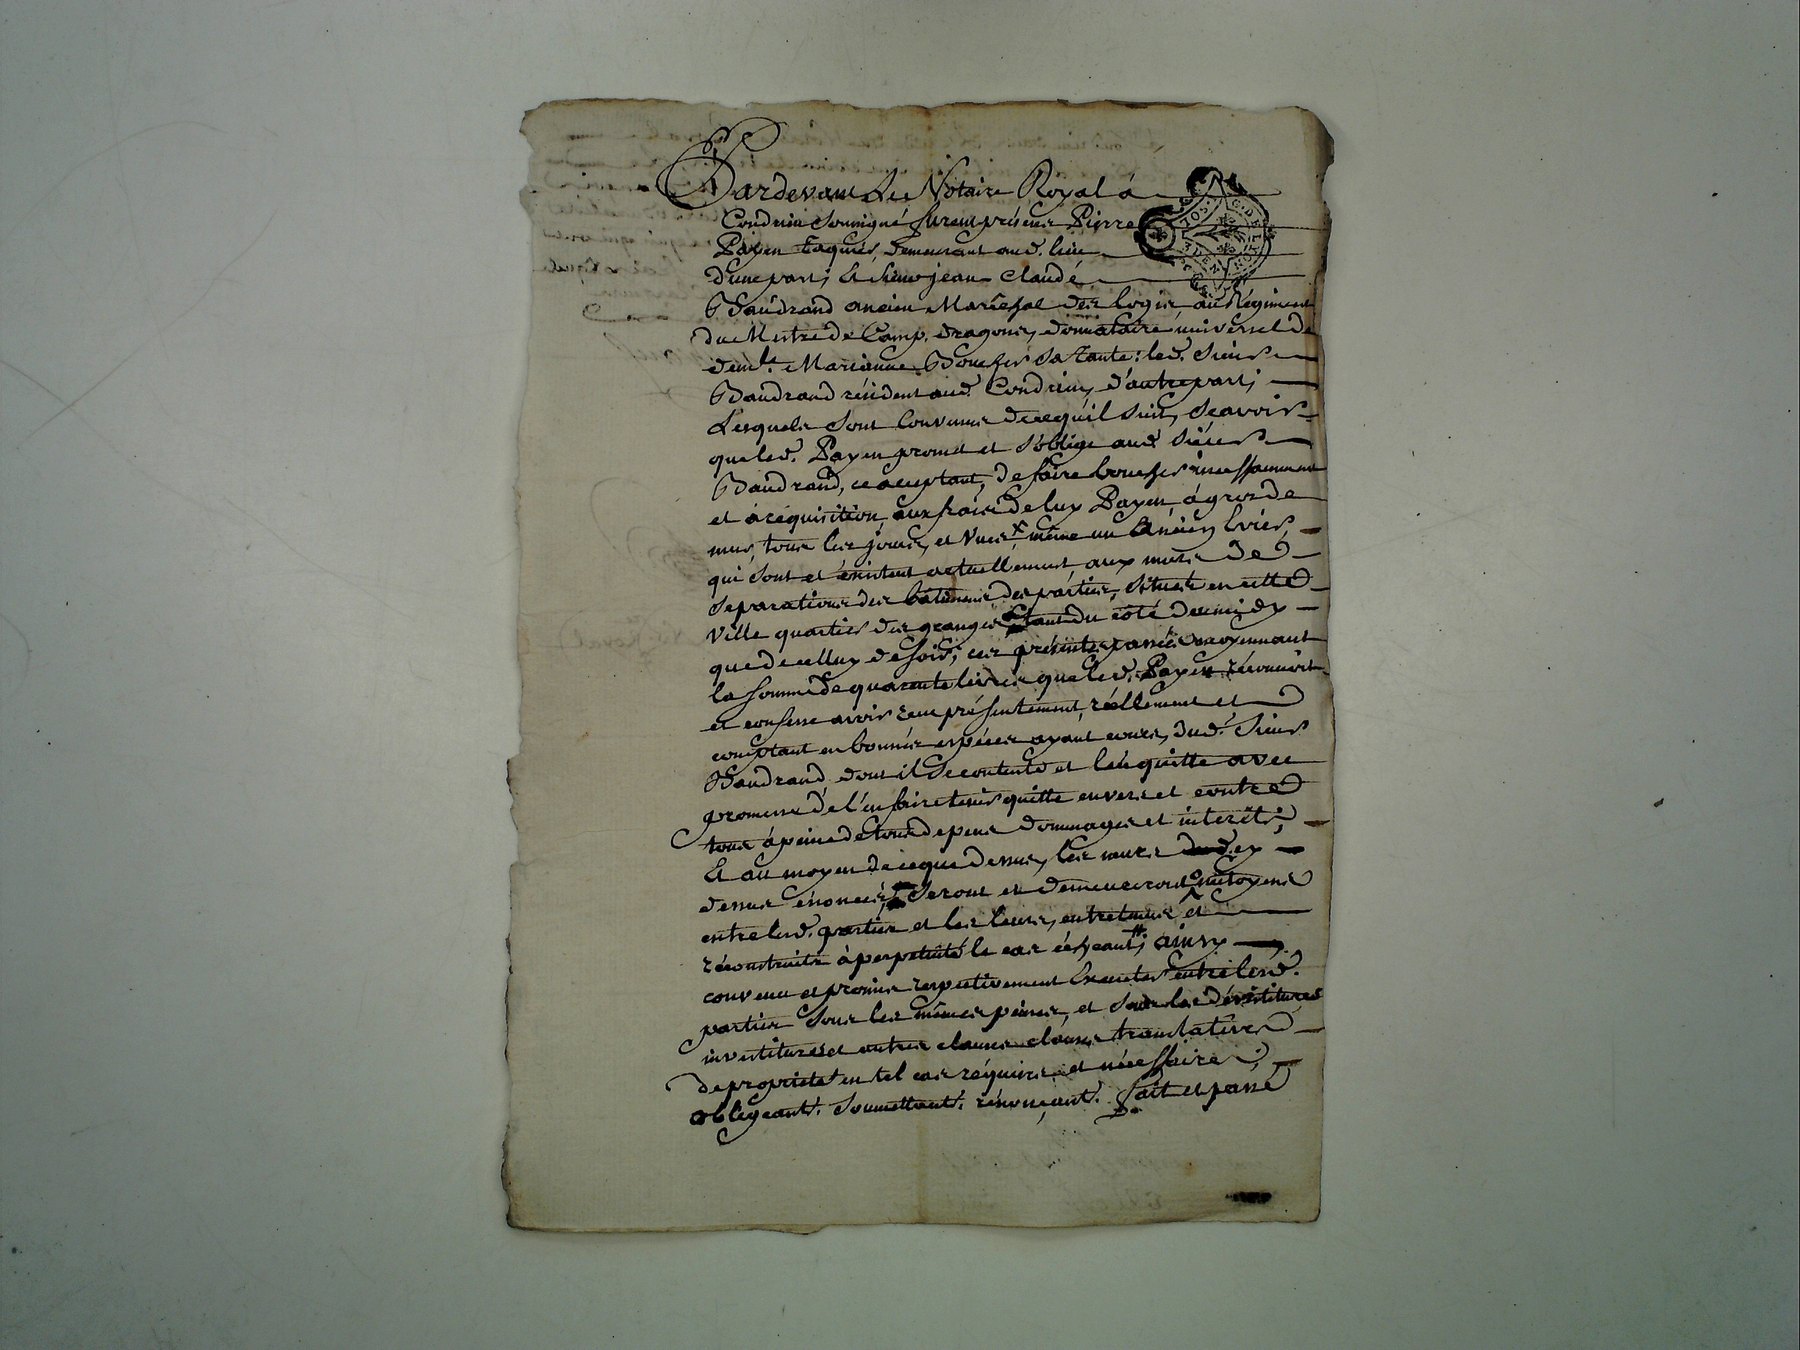 Pardevant Le Notaire Royal à
Condrieu Soussigné furent présens Pierre
Payen demeurant aud. lieu
d'une part; Et Sieur jean Claude
Baudrand ancien Marêchal des logis, au Régiment
du Mestre de Camp, dragons, donnataire universel de
dem.lle Marianne Boucher Sa Tante: led. Sieur
Baudrand résident aud. Condrieu, d'autre part;
Lesquels Sont Convenus de ce qu'il Suit, Sçavoir
que led. Payen promet et S'oblige aud. Sieur
Baudrand, ce acceptant, de faire boucher incessamment
et à réquisition, aux frais de luy Payen, à gros de
mur, tous les jours, et Vues, x même un Ancien Evier,
qui Sont et éxistent actuellement, aux murs de
Séparations des bâtimens des parties, Situés en cette
Ville quartier des granges tant du côté de midy
que de celluy de Soir; ces présentes passées moyennant
la Somme de quarente livres que led. Payen réconnoit
et confesse avoir reçu présentement, réellement et
comptant en bonnes espéces ayant cours, dud. Sieur
Baudrand, dont il Se contente et l'en quitte avec
promesse de l'en faire tenir quitte envers et contre
tous à peine de tous depens dommages et interêts;
Et au moyen de ce que dessus, les murs cy
dessus énoncés, Seront et demeureront mitoyens
entre lesd. parties et les leurs, entretenus et
réconstruits à perpetuité le cas échéant; ainsy
convenu et promis respectivement Executer entre lesd.
parties Sous les mêmes peines, et Sous les dévestitures
investitures et autres clauses translatives
de proprieté en tel cas réquises et nécessaires;
obligeant. Soumettant. rénonçant. fait et passé